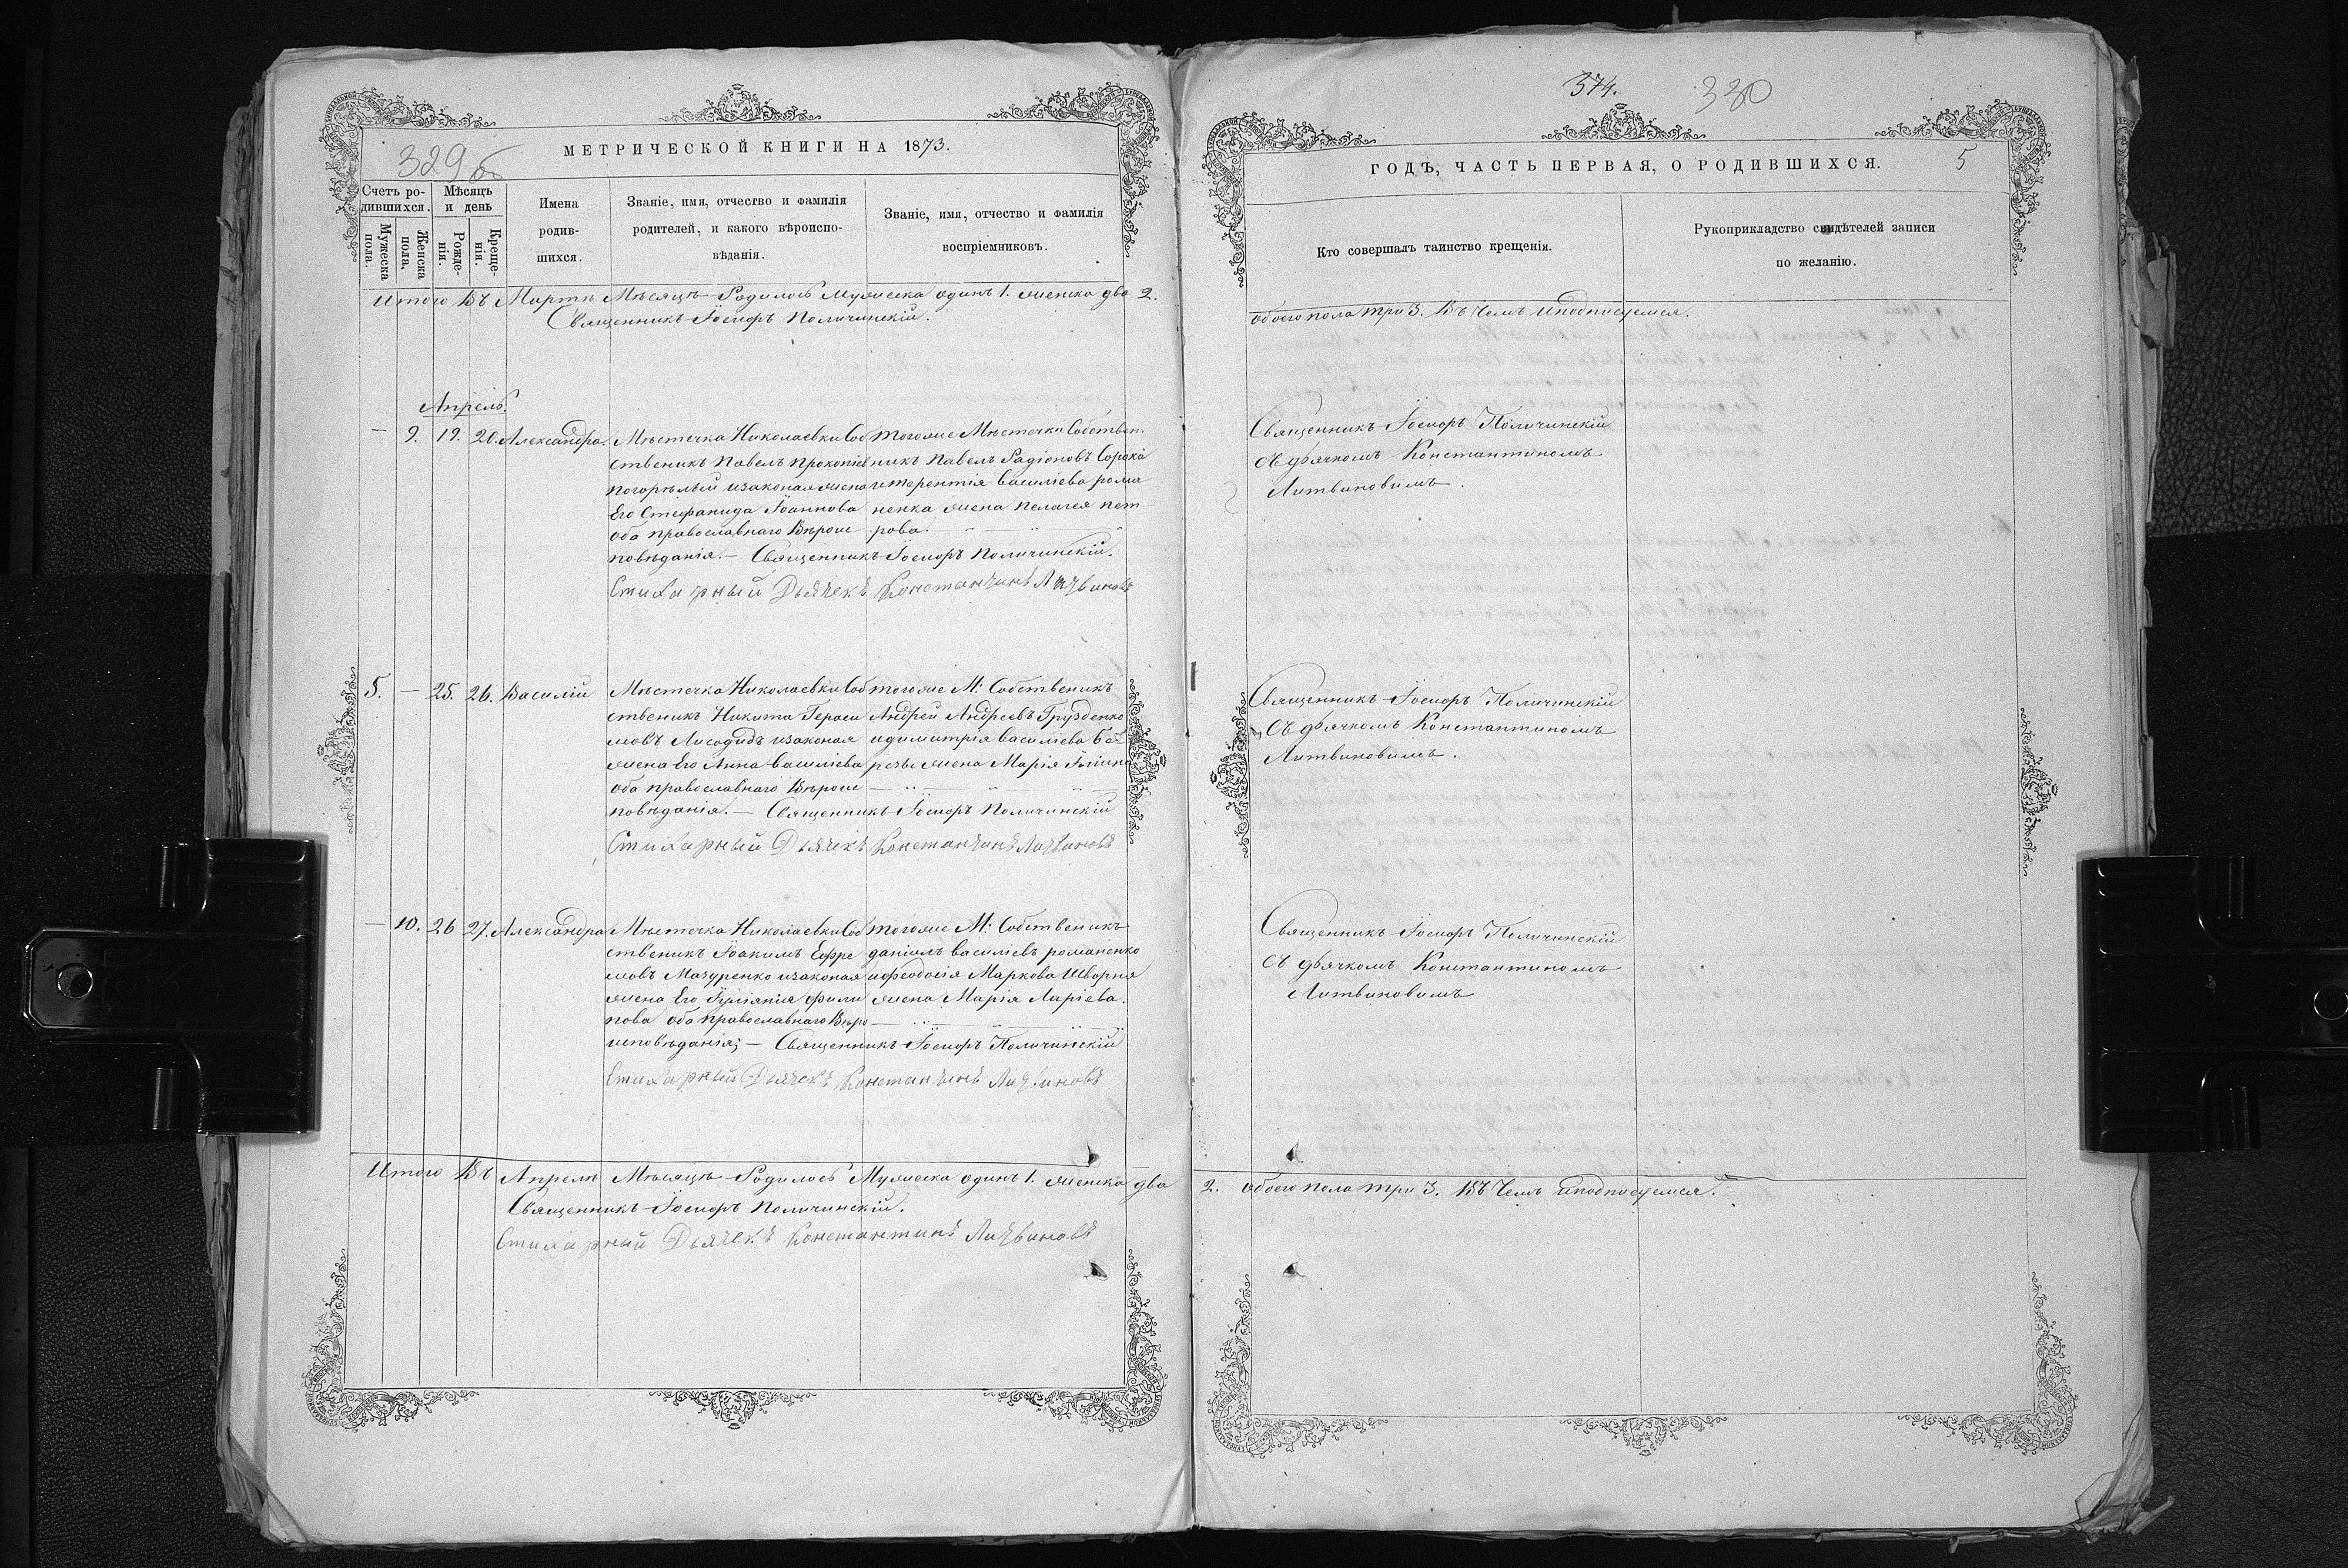 329 б
МЕТРИЧЕСКОЙ КНИГИ НА 1873.
Счетъ ро-
дившихся.
Мужеска
пола.
Женска
пола.
Мѣсяцъ
и день
Рожде-
нія.
Креще-
нія.
Имена
родив-
шихся.
Званіе, имя, отчество и фамилія
родителей, и какого вѣроиспо-
вѣданія.
Званіе, имя, отчество и фамилія
воспріемниковъ.
Итого Въ Мартѣ Мѣсяцѣ Родилось Мужеска одинъ 1. женска два 2.
Священникъ Іосифъ Поличинскій.
Апрель.
— 9. 19. 20. Александра.
Мѣстечка Николаевки Соб
ственикъ Павелъ Прокопіев
Погорѣлый изаконая жена
Его Стефанида Іоаннова
оба православнаго Вѣроис
повѣданія. — Священникъ Іосифъ Поличинскій.
Стихарный Дьячекъ Константинъ Литвиновъ
тогоже Мѣстечки Собствен.
никъ Павелъ Радіоновъ Сорока
итерентія Василіева рома
ненка жена Пелагея пет
рова.
5. — 25. 26. Василій
Мѣстечка Николаевки Соб
ственикъ Никита Гераси
мовъ Лисодидъ изаконая
жена Его Анна Василіева
оба православнаго Вѣроис
повѣданія. — Священникъ Іосифъ Поличинскій
Стихарный Дьячекъ Константинъ Литвиновъ
тогоже М: Собственикъ
Андрей Андреевъ Грузденко
идимитрія Василіева Бе
жена Марія
— 10. 26 27. Александра
Мѣстечка Николаевки Соб
ственикъ Іоакимъ Ефре
мовъ Мазуренко изаконая
жена Его Іуліянія Фили
пова оба православнаго Вѣро
исповѣданія; — Священникъ Іосифъ Поличинскій
Стихарный Дьячекъ Константинъ Литвиновъ
тогоже М: Собственикъ
даніилъ Василіевъ романенко
иѳеодосія Маркова Шворня
жена Марія Ларіева.
Итого Въ Апрелѣ Мѣсяцѣ Родилось Мужеска одинъ 1. женска два
Священникъ Іосифъ Поличинскій.
Стихарный Дьячекъ Константинъ Литвиновъ
374. 330
ГОДЪ, ЧАСТЬ ПЕРВАЯ, О РОДИВШИХСЯ. 5
Кто совершалъ таинство крещенія.
Рукоприкладство свидѣтелей записи
по желанію.
обоего пола три 3. Въ Чемъ иподписуемся.
Священникъ Іосифъ Поличинскій
съ дьячкомъ Константиномъ
Литвиновимъ.
Священникъ Іосифъ Поличинскій
съ дьячкомъ Константиномъ
Литвиновимъ.
Священникъ Іосифъ Поличинскій
съ дьячкомъ Константиномъ
Литвиновимъ
2. обоего пола три 3. Въ Чемъ иподписуемся.